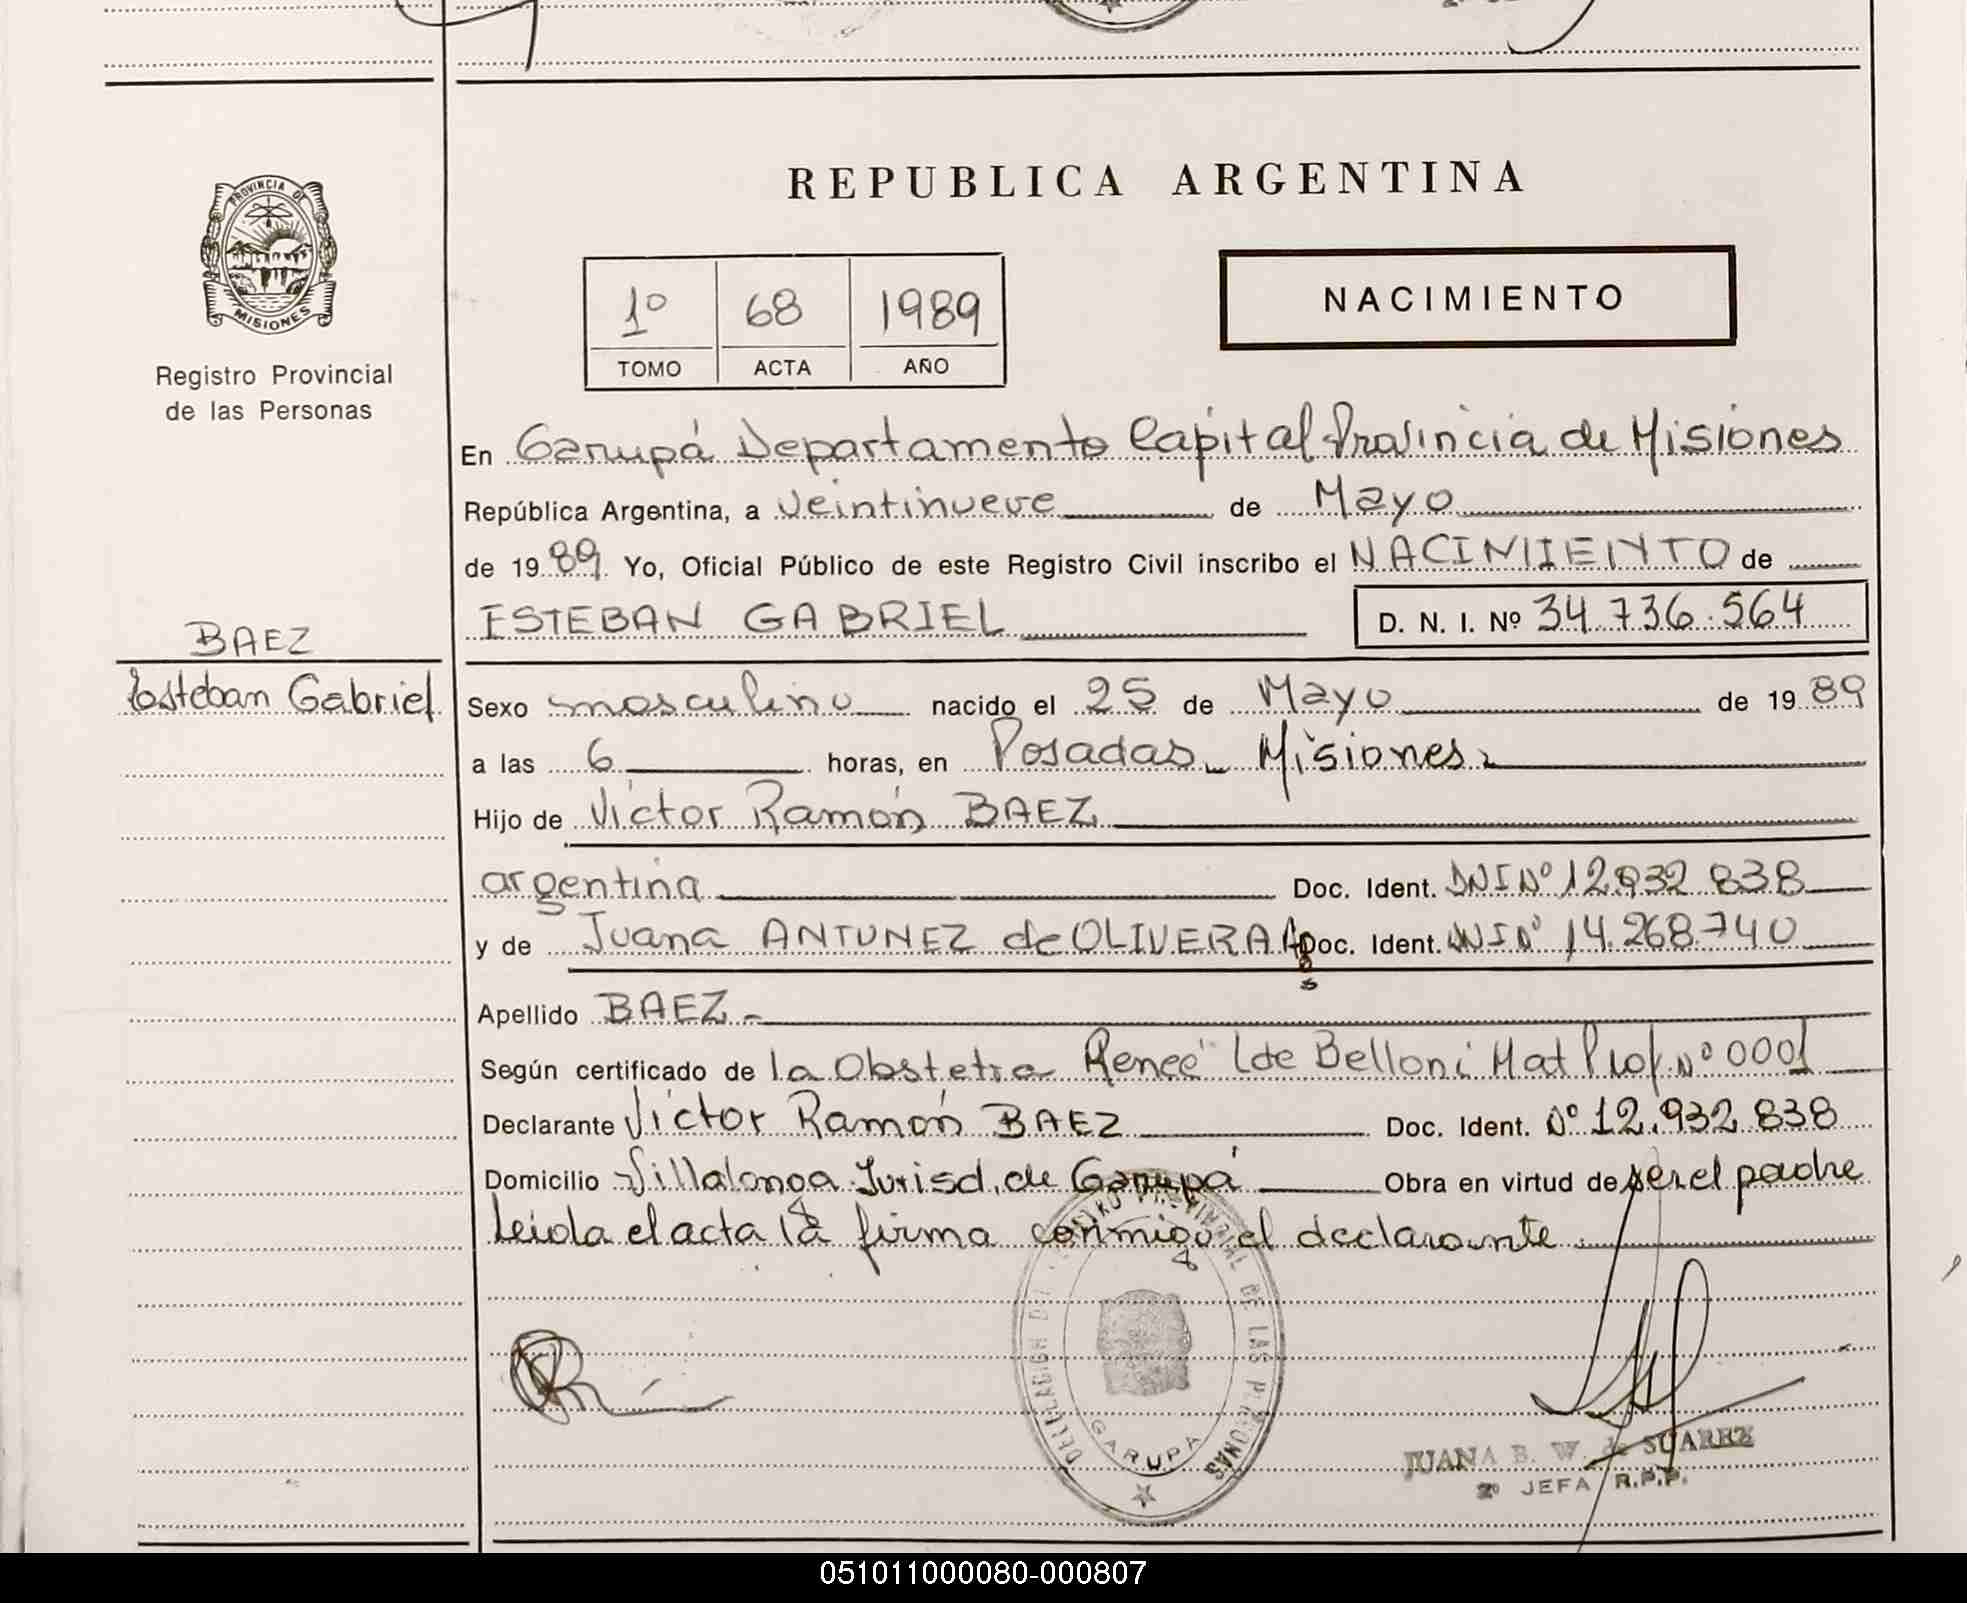 REPUBLICA ARGENTINA
PROVINCIA DE
MISIONES
Registro Provincial
de las Personas
1º 68 1989
TOMO ACTA AÑO
NACIMIENTO
En Garupá Departamento Capital Provincia de Misiones
República Argentina, a veintinueve de Mayo
de 1989 Yo, Oficial Público de este Registro Civil inscribo el NACIMIENTO de
ESTEBAN GABRIEL D. N. I. Nº 34.736.564
BAEZ
Esteban Gabriel
Sexo masculino nacido el 25 de Mayo de 1989
a las 6 horas, en Posadas Misiones
Hijo de Víctor Ramón BAEZ
argentina Doc. Ident. DNI Nº 12.932.838
y de Juana ANTUNEZ de OLIVERA Doc. Ident. DNI Nº 14.268.740
Apellido BAEZ
Según certificado de la Obstetra Reneé de Belloni Mat Prof. Nº 0001
Declarante Víctor Ramón BAEZ Doc. Ident. Nº 12.932.838
Domicilio Villalonga Jurisd. de Garupá Obra en virtud de ser el padre
leida el acta la firma conmigo el declarante
DELEGACION DEL REGISTRO PROVINCIAL DE LAS PERSONAS
GARUPA
JUANA B. W. de SUAREZ
2º JEFA R.P.P.
051011000080-000807